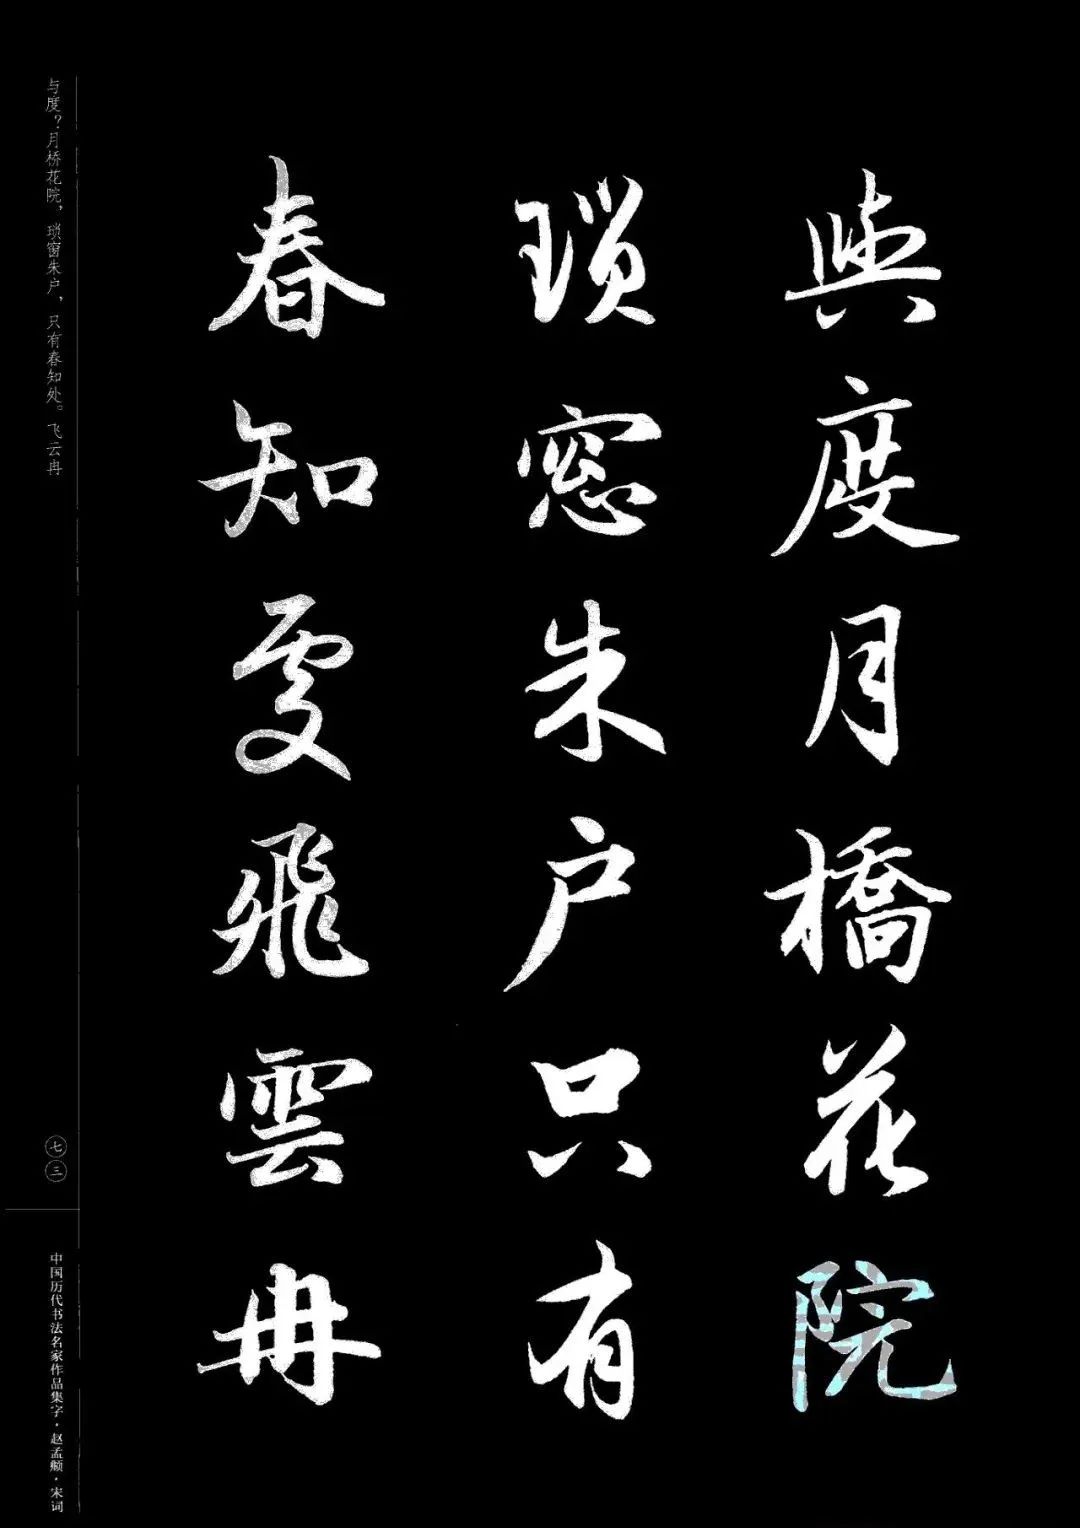 與度月橋花院
瑣窓朱户只有
春知處飛雲冉
与度？月桥花院，琐窗朱户，只有春知处。飞云冉
七三
中国历代书法名家作品集字·赵孟頫·宋词